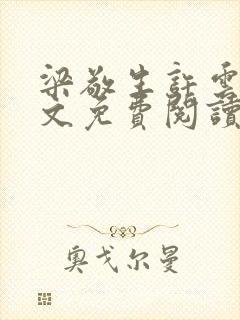 梁敬生許雲
文免費閱讀
奥戈尔曼